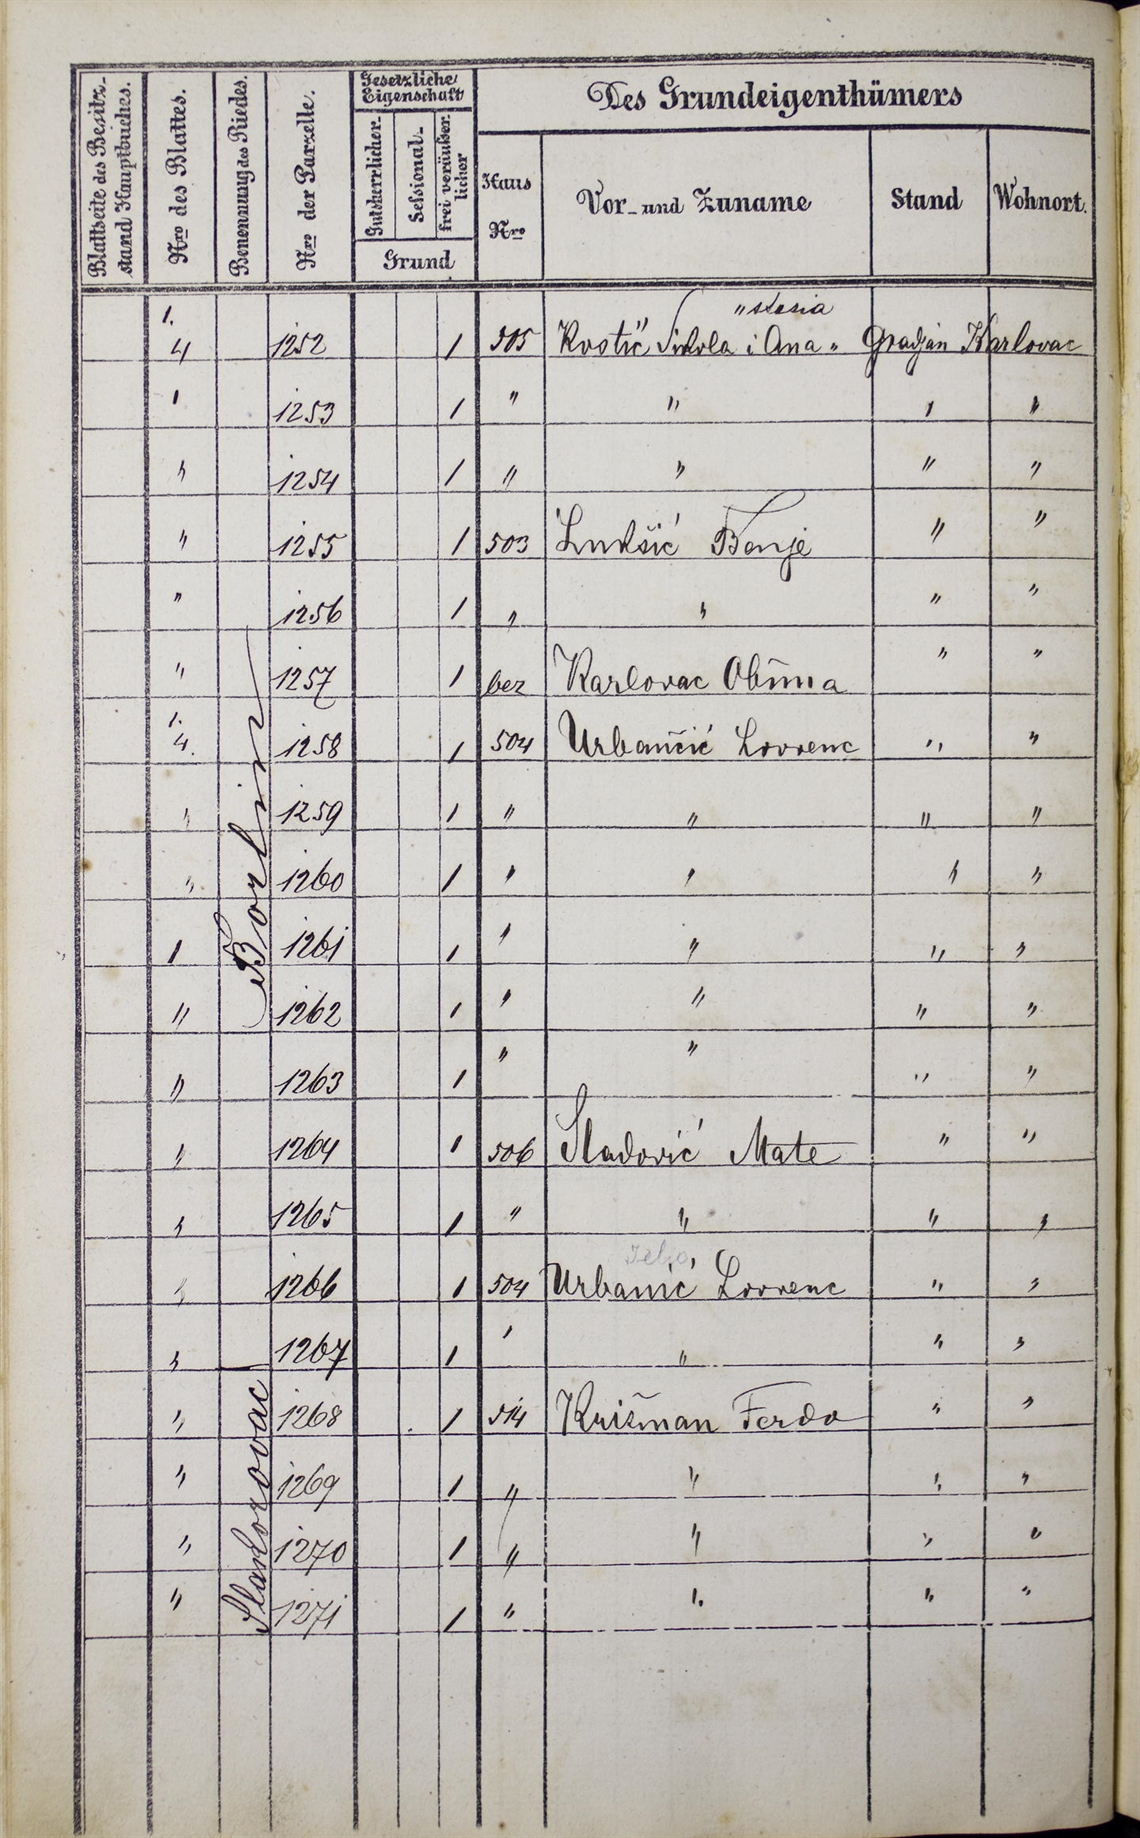 Blattseite des Besitz-stand Hauptbuches. Nro des Blattes. Benennung des Riedes. Nro der Parzelle. Gesetzliche Eigenschaft Des Grundeigenthümers
Gutsherrlicher. Sessional. frei veräußerlicher Haus Nro Vor- und Zuname Stand Wohnort.
Grund
1. "stasia
4 1252 1 505 Kostić Nikola i Ana " Gradjan Karlovac
1 1253 1 " " " "
" 1254 1 " " " "
" 1255 1 503 Lukšić Banje " "
" 1256 1 " " " "
" 1257 1 bez Karlovac Obćina " "
1.
4. 1258 1 504 Urbančić Lovrenc " "
" 1259 1 " " " "
" 1260 1 " " " "
Borlin
1 1261 1 " " " "
" 1262 1 " " " "
" 1263 1 " " " "
" 1264 1 506 Sladović Mate " "
" 1265 1 " " " "
" 1266 1 504 Urbanić Lovrenc " "
" 1267 1 " " " "
" 1268 1 514 Križman Ferdo " "
" 1269 1 " " " "
" 1270 1 " " " "
" 1271 1 " " " "